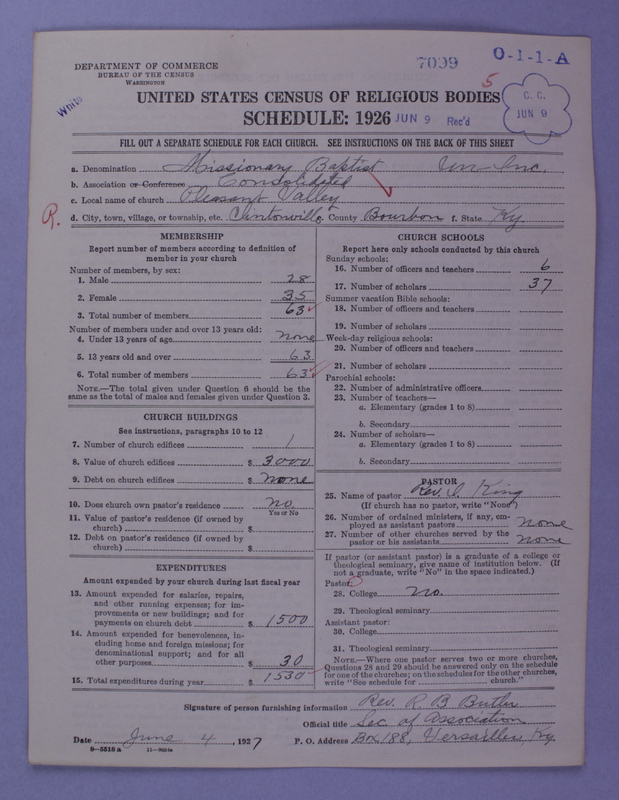 DEPARTMENT OF COMMERCE
BUREAU OF THE CENSUS
WASHINGTON
7099
O-1-1-A
White
5
UNITED STATES CENSUS OF RELIGIOUS BODIES
C. C.
JUN 9
SCHEDULE: 1926 JUN 9 Rec'd
FILL OUT A SEPARATE SCHEDULE FOR EACH CHURCH. SEE INSTRUCTIONS ON THE BACK OF THIS SHEET
a. Denomination Missionary Baptist Un-Inc.
b. Association or Conference Consolidated
c. Local name of church Pleasant Valley
R. d. City, town, village, or township, etc. Clintonville County Bourbon f. State Ky.
MEMBERSHIP
Report number of members according to definition of
member in your church
Number of members, by sex:
1. Male 28
2. Female 35
3. Total number of members 63
Number of members under and over 13 years old:
4. Under 13 years of age none
5. 13 years old and over 63
6. Total number of members 63
NOTE.—The total given under Question 6 should be the
same as the total of males and females given under Question 3.
CHURCH BUILDINGS
See instructions, paragraphs 10 to 12
7. Number of church edifices 1
8. Value of church edifices $ 3000
9. Debt on church edifices $ none
10. Does church own pastor's residence no.
Yes or No
11. Value of pastor's residence (if owned by
church) $
12. Debt on pastor's residence (if owned by
church) $
EXPENDITURES
Amount expended by your church during last fiscal year
13. Amount expended for salaries, repairs,
and other running expenses; for im-
provements or new buildings; and for
payments on church debt $ 1500
14. Amount expended for benevolences, in-
cluding home and foreign missions; for
denominational support; and for all
other purposes $ 30
15. Total expenditures during year $ 1530
CHURCH SCHOOLS
Report here only schools conducted by this church
Sunday schools:
16. Number of officers and teachers 6
17. Number of scholars 37
Summer vacation Bible schools:
18. Number of officers and teachers
19. Number of scholars
Week-day religious schools:
20. Number of officers and teachers
21. Number of scholars
Parochial schools:
22. Number of administrative officers
23. Number of teachers—
a. Elementary (grades 1 to 8)
b. Secondary
24. Number of scholars—
a. Elementary (grades 1 to 8)
b. Secondary
PASTOR
25. Name of pastor Rev. I. King
(If church has no pastor, write "None")
26. Number of ordained ministers, if any, em-
ployed as assistant pastors none
27. Number of other churches served by the
pastor or his assistants none
If pastor (or assistant pastor) is a graduate of a college or
theological seminary, give name of institution below. (If
not a graduate, write "No" in the space indicated.)
Pastor:
28. College no.
29. Theological seminary
Assistant pastor:
30. College
31. Theological seminary
NOTE.—Where one pastor serves two or more churches,
Questions 28 and 29 should be answered only on the schedule
for one of the churches; on the schedules for the other churches,
write "See schedule for church."
Signature of person furnishing information Rev. R. B Butler
Official title Sec of Association
Date June 4, 1927 P. O. Address Box 188, Versailles Ky.
8-5518 a